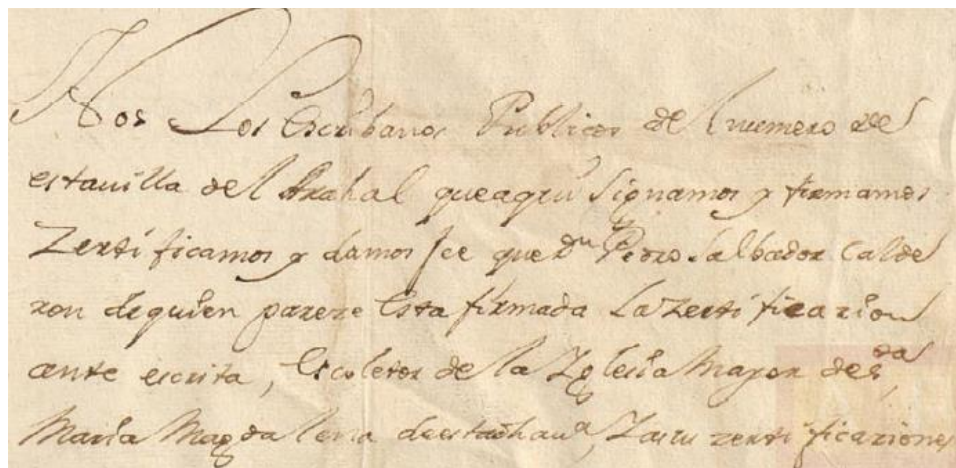 Nos Los Escribanos Publicos del numero de
estauilla del Arahal queaqui Signamos y firmamos
Zertificamos y damos fee que Dn Pedro Salbador Calde
ron dequien pareze Esta firmada La zertificazion
ante escrita, Es coletor de la Yglesia Mayor de Sta
Maria Magdalena deestadha ua, zertificaziones